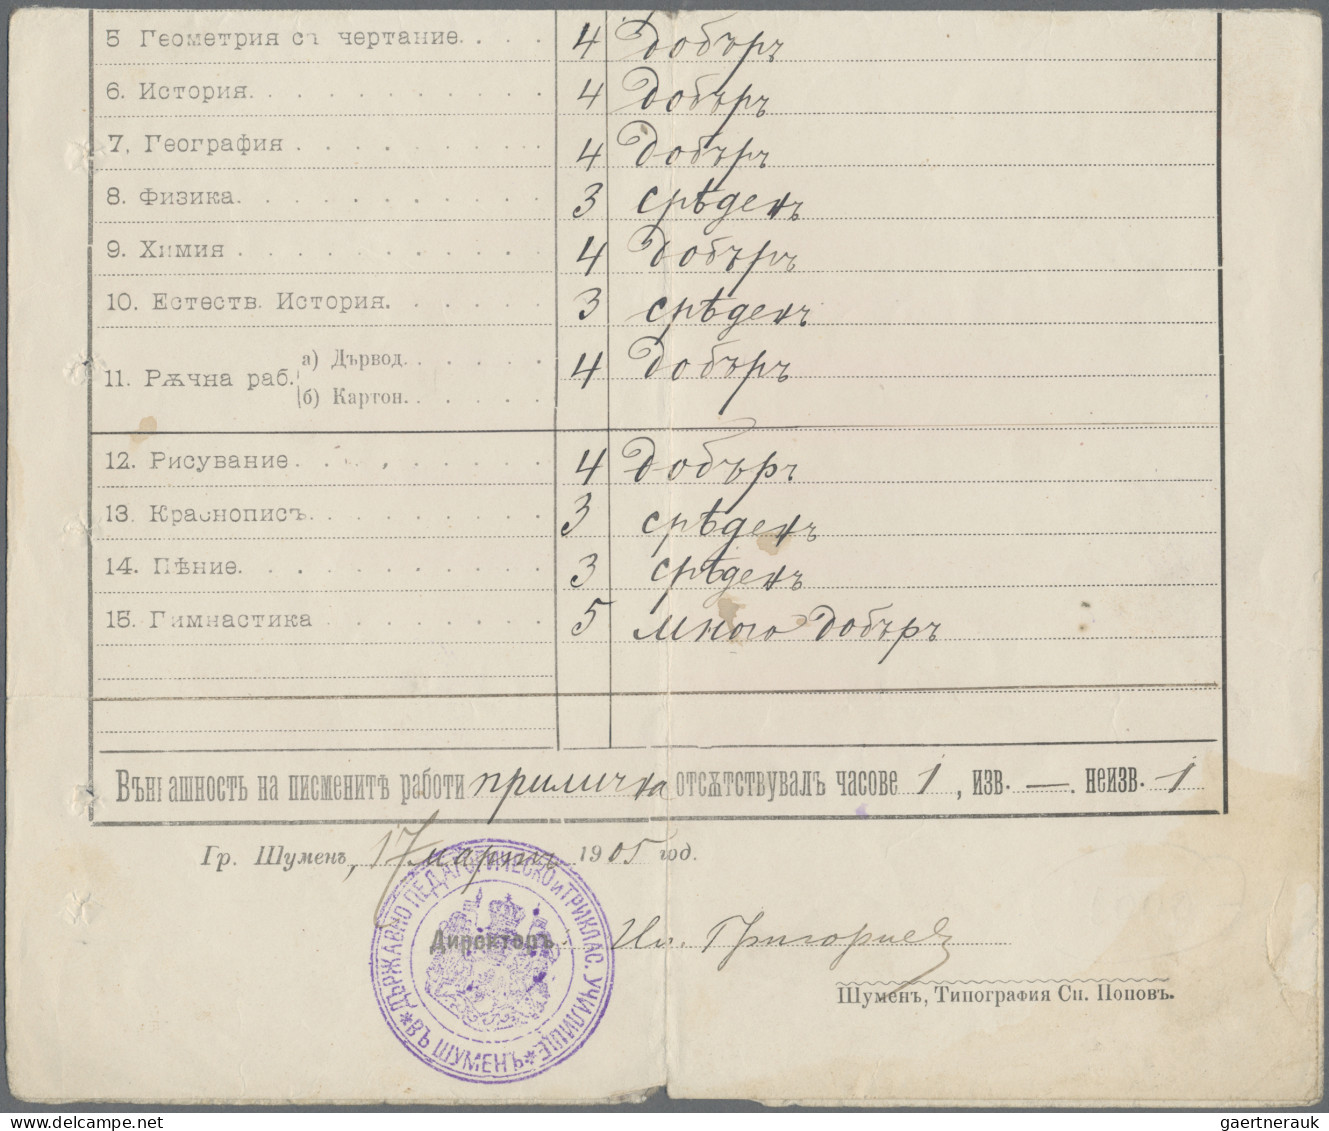 5 Геометрия съ чертание. 4 Добъръ
6. История. 4 Добъръ
7. География 4 Добъръ
8. Физика. 3 срѣденъ
9. Химия 4 Добъръ
10. Естеств. История. 3 срѣденъ
11. Рѫчна раб. а) Дървод. б) Картон. 4 Добъръ
12. Рисувание 4 Добъръ
13. Краснописъ. 3 срѣденъ
14. Пѣние. 3 срѣденъ
15. Гимнастика 5 много добъръ
Външность на писменитѣ работи прилична отсѫтствувалъ часове 1, изв. —. неизв. 1
Гр. Шуменъ, 17 мартъ 1905 год.
Директоръ: Ил. Григориев
ДЪРЖАВНО ПЕДАГОГИЧЕСКО И ТРИКЛАС. УЧИЛИЩЕ * ВЪ ШУМЕНЪ *
Шуменъ, Типография Сп. Поповъ.
www.delcampe.net
gaertnerauk